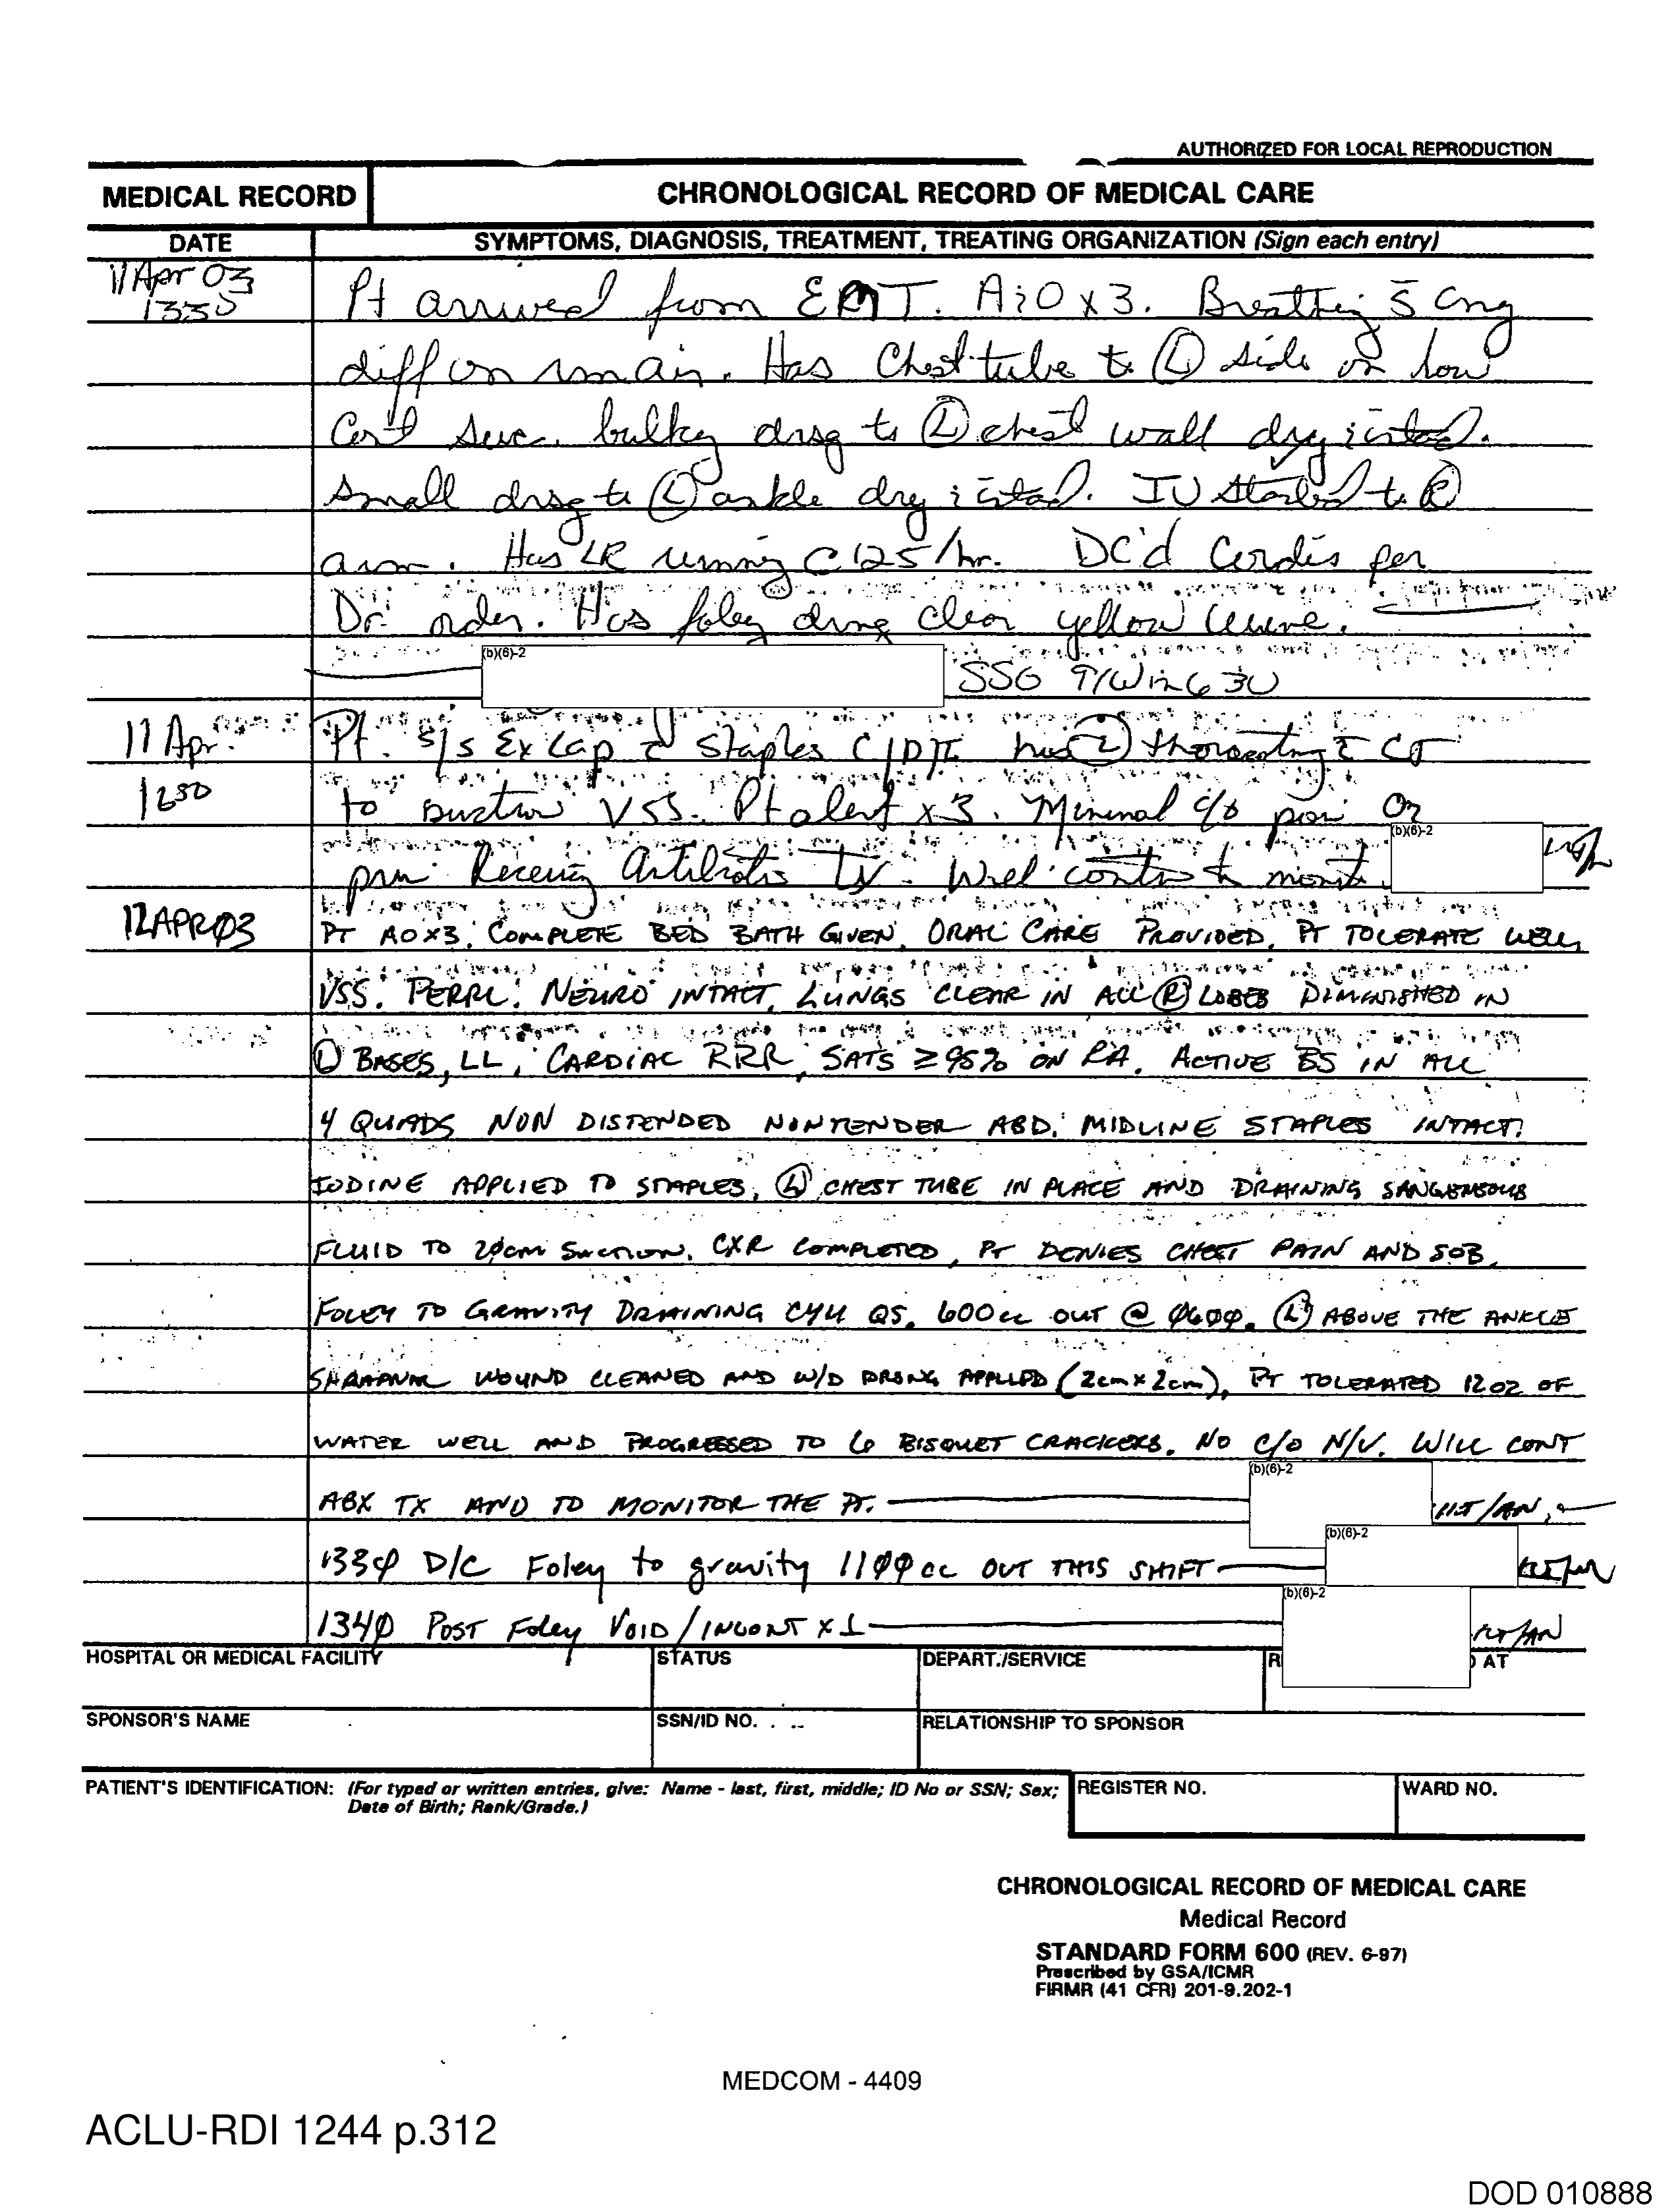 AUTHORIZED FOR LOCAL REPRODUCTION
MEDICAL RECORD
CHRONOLOGICAL RECORD OF MEDICAL CARE
DATE
SYMPTOMS, DIAGNOSIS, TREATMENT, TREATING ORGANIZATION (Sign each entry)
11 Apr 03 Pt arrived from EMT. A&Ox3. Breathing s̄ any
diff on rm air. Has Chest tube to Ⓛ side on low
Cont Suc. bulky drsg to Ⓛ chest wall dry & intact.
Small drsg to Ⓛ ankle dry & intact. IV started to Ⓡ
arm. Has LR running @ 125/hr. DC'd Cordis per
Dr. order. Has foley drng clear yellow urine.
(b)(6)-2 SSG
11 Apr. Pt. s/s Ex Lap c̄ staples C/D/I has Ⓛ c̄ CT
to suction VSS. Pt alert x3. Minimal c/o pain
(b)(6)-2
Receiving Antibiotics IV. Will to monit.
12 APR 03 PT AOX3. COMPLETE BED BATH GIVEN, ORAL CARE PROVIDED, PT TOLERATE WELL,
VSS. PERRL. NEURO INTACT, LUNGS CLEAR IN ALL Ⓡ LOBES DIMINISHED IN
Ⓛ BASES, LL, CARDIAC RRR, SATS ≥98% ON RA. ACTIVE BS IN ALL
4 QUADS NON DISTENDED NONTENDER ABD. MIDLINE STAPLES INTACT.
IODINE APPLIED TO STAPLES, Ⓛ CHEST TUBE IN PLACE AND DRAINING SANGUENSOUS
FLUID TO 20cm SUCTION. CXR COMPLETED, PT DENIES CHEST PAIN AND SOB,
FOLEY TO GRAVITY DRAINING CYU QS. 600cc OUT @ 0600. Ⓛ ABOVE THE ANKLE
WOUND CLEANED AND W/D DRSNG APPLIED (2cm x 2cm), PT TOLERATED 12 OZ OF
WATER WELL AND PROGRESSED TO 6 BISQUET CRACKERS. NO C/O N/V. WILL CONT
(b)(6)-2
ABX TX AND TO MONITOR THE PT. /AN,
(b)(6)-2
1330 D/C Foley to gravity 1100cc OUT THIS SHIFT
(b)(6)-2
1340 POST Foley VOID/INCONT X 1 /AN
HOSPITAL OR MEDICAL FACILITY
STATUS
DEPART./SERVICE
AT
SPONSOR'S NAME
SSN/ID NO.
RELATIONSHIP TO SPONSOR
PATIENT'S IDENTIFICATION: (For typed or written entries, give: Name - last, first, middle; ID No or SSN; Sex;
Date of Birth; Rank/Grade.)
REGISTER NO.
WARD NO.
CHRONOLOGICAL RECORD OF MEDICAL CARE
Medical Record
STANDARD FORM 600 (REV. 6-97)
Prescribed by GSA/ICMR
FIRMR (41 CFR) 201-9.202-1
MEDCOM - 4409
ACLU-RDI 1244 p.312
DOD 010888